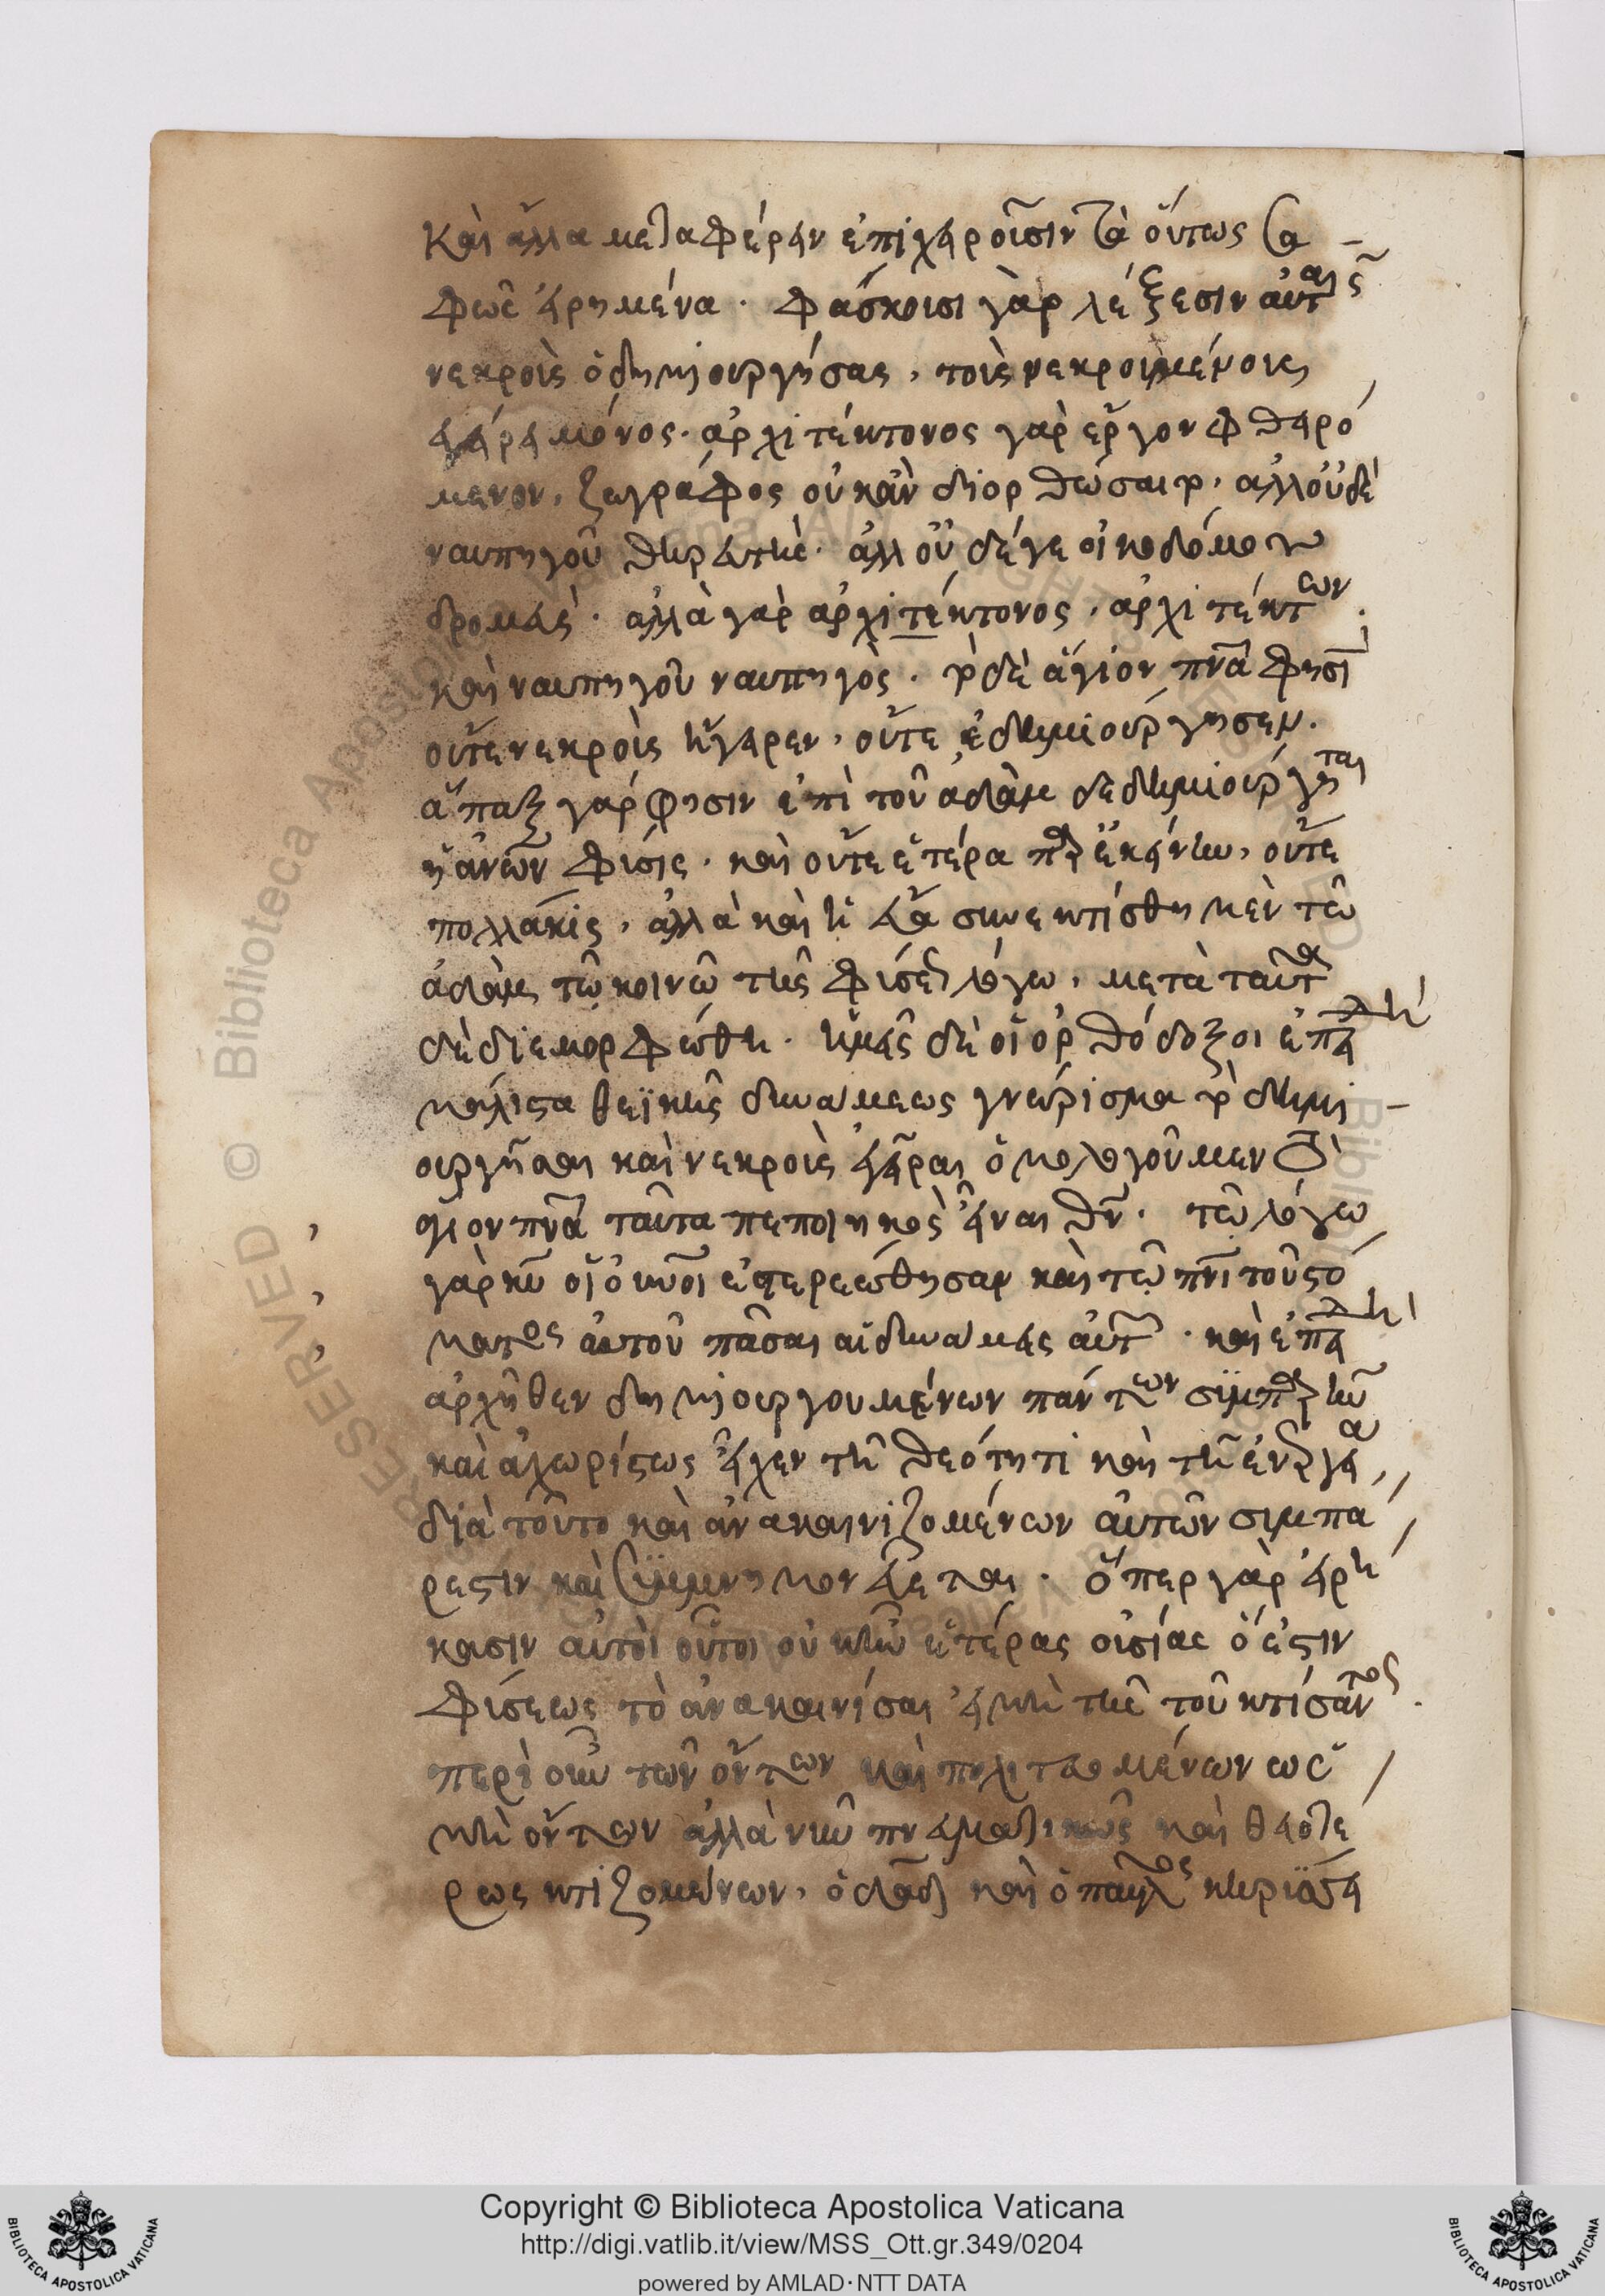 καὶ ἄλλα μεταφέρειν ἐπιχειροῦσιν τὰ οὕτως σα
φῶς εἰρημένα. φάσκουσι γὰρ λέξεσιν αὐταῖς
νεκροὺς ὁ δημιουργήσας, τοὺς νεκρουμένους
ἐγείρει μόνος. ἀρχιτέκτονος γὰρ ἔργον φθειρό
μενον, ζωγράφος οὐκ ἂν διορθώσαιτο. ἀλλ' οὐδὲ
ναυπηγοῦ
ἀλλ' οὐδέ γε οἰκοδόμον
δρομεὺς. ἀλλὰ γὰρ ἀρχιτέκτονος, ἀρχιτέκτων.
καὶ ναυπηγοῦ ναυπηγὸς. τὸ δὲ ἅγιον πνα φησὶ
οὔτε νεκροὺς ἤγειρεν, οὔτε ἐδημιούργησεν.
ἅπαξ γάρ φησιν ἐπὶ τοῦ ἀδὰμ δεδημιούργηται
ἡ ἀνων φύσις. καὶ οὔτε ἑτέρα παρ' ἐκείνην, οὔτε
πολλάκις, ἀλλὰ καὶ ἡ εὔα συνεκτίσθη μὲν τῶ
ἀδὰμ τῶ κοινῶ τῆς φύσεως λόγω, μετὰ ταῦτα
δὲ διεμορφώθη. ἡμεῖς δὲ οἱ ὀρθόδοξοι ἐπειδὴ
μάλιστα θεϊκῆς δυνάμεως γνώρισμα τὸ δημι
ουργῆσαι καὶ νεκροὺς ἐγεῖραι ὁμολογοῦμεν τὸ
ἅγιον πνα ταῦτα πεποιηκὸς εἶναι θν. τῶ λόγω
γὰρ κυ οἱ οὐνοι ἐστερεώθησαν καὶ τῶ πνι τοῦ στό
ματος αὐτοῦ πᾶσαι αἱ δυνάμεις αὐτῶν. καὶ ἐπειδὴ
ἀρχῆθεν δημιουργουμένων πάντων συμπαρῆν
καὶ ἀχωρίστως εἶχεν τῆ θεότητι καὶ τῆ ἐνεργεία,
διὰ τοῦτο καὶ ἀνακαινιζομένων αὐτῶν συμπά
ρεστιν καὶ συμμνημονεύεται. ὅπερ γὰρ εἰρή
κασιν αὐτοὶ οὗτοι οὐκ ἦν ἑτέρας οὐσίας ὅ ἐστιν
φύσεως τὸ ἀνακαινίσαι εἰ μὴ τῆς τοῦ κτίσαντος.
περὶ οὖν τῶν ὄντων καὶ πολιτευομένων ὡς
μὴ ὄντων ἀλλὰ νῦν πνευματικῶς καὶ θειοτέ
ρως κτιζομένων, ὁ δαδ καὶ ὁ παῦλος